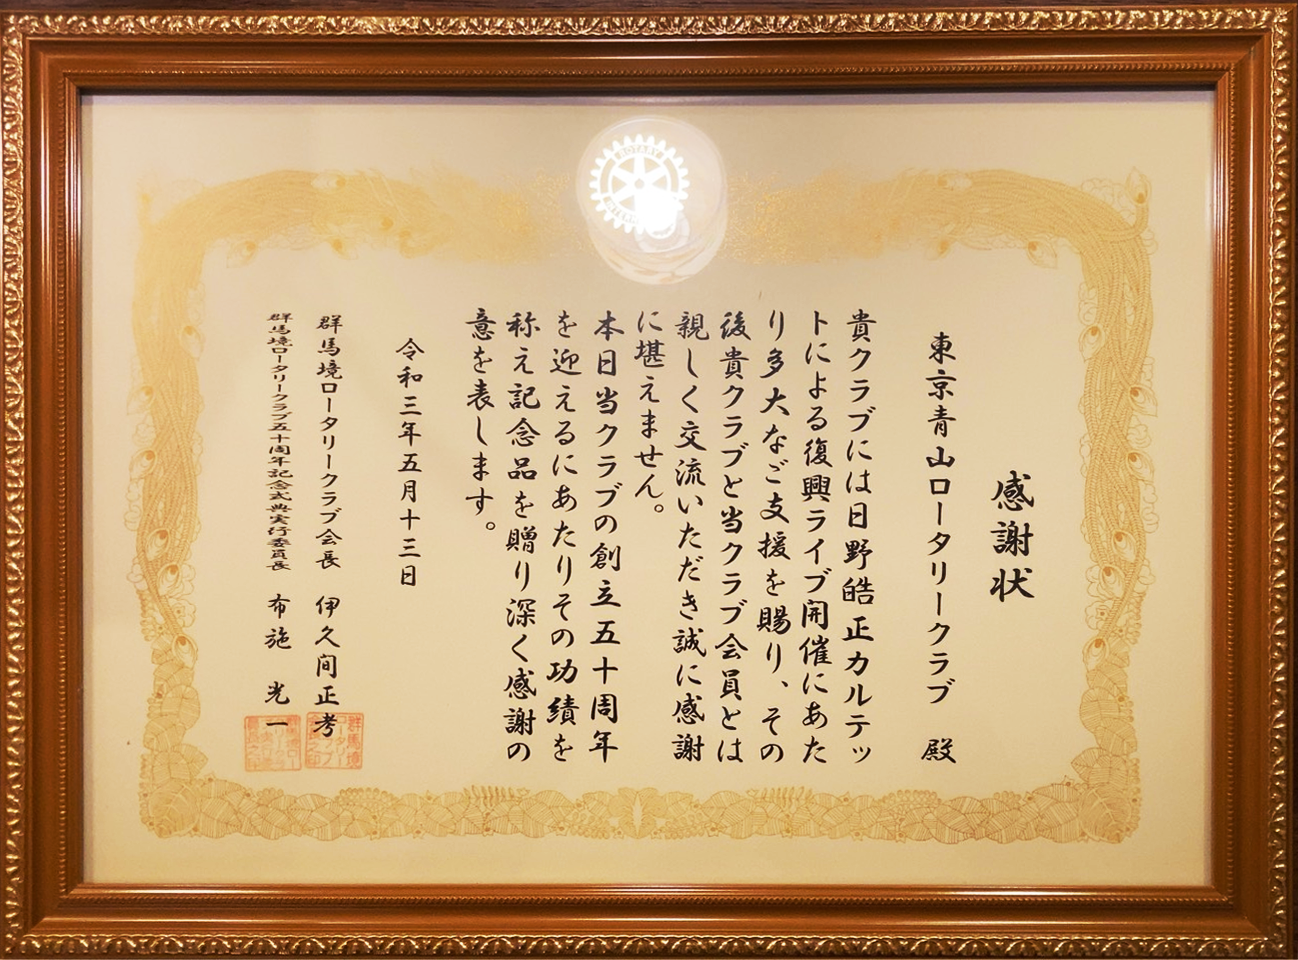 ROTARY
感謝状
東京青山ロータリークラブ 殿
貴クラブには日野皓正カルテッ
トによる復興ライブ開催にあた
り多大なご支援を賜り、その
後貴クラブと当クラブ会員とは
親しく交流いただき誠に感謝
に堪えません。
本日当クラブの創立五十周年
を迎えるにあたりその功績を
称え記念品を贈り深く感謝の
意を表します。
令和三年五月十三日
群馬境ロータリークラブ会長 伊久間正考
群馬境ロータリークラブ五十周年記念式典実行委員長 布施光一